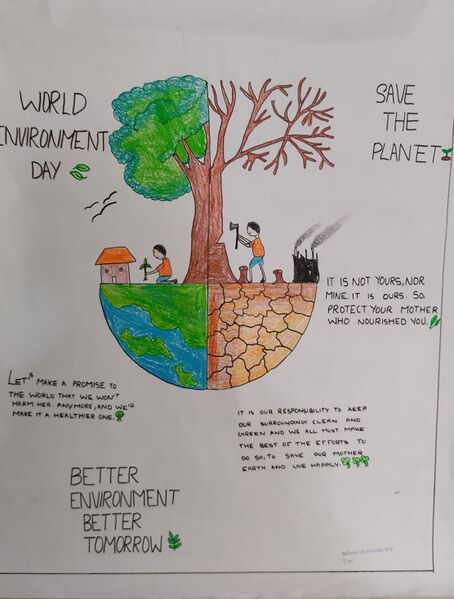 WORLD
ENVIRONMENT
DAY
SAVE
THE
PLANET
IT IS NOT YOURS, NOR
MINE. IT IS OURS. SO
PROTECT YOUR MOTHER
WHO NOURISHED YOU.
LET'S MAKE A PROMISE TO
THE WORLD THAT WE WON'T
HARM HER ANYMORE, AND WE'LL
MAKE IT A HEALTHIER ONE.
IT IS OUR RESPONSIBILITY TO KEEP
OUR SURROUNDING CLEAN AND
GREEN AND WE ALL MUST MAKE
THE BEST OF THE EFFORTS TO
DO SO, TO SAVE OUR MOTHER
EARTH AND LIVE HAPPILY.
BETTER
ENVIRONMENT
BETTER
TOMORROW